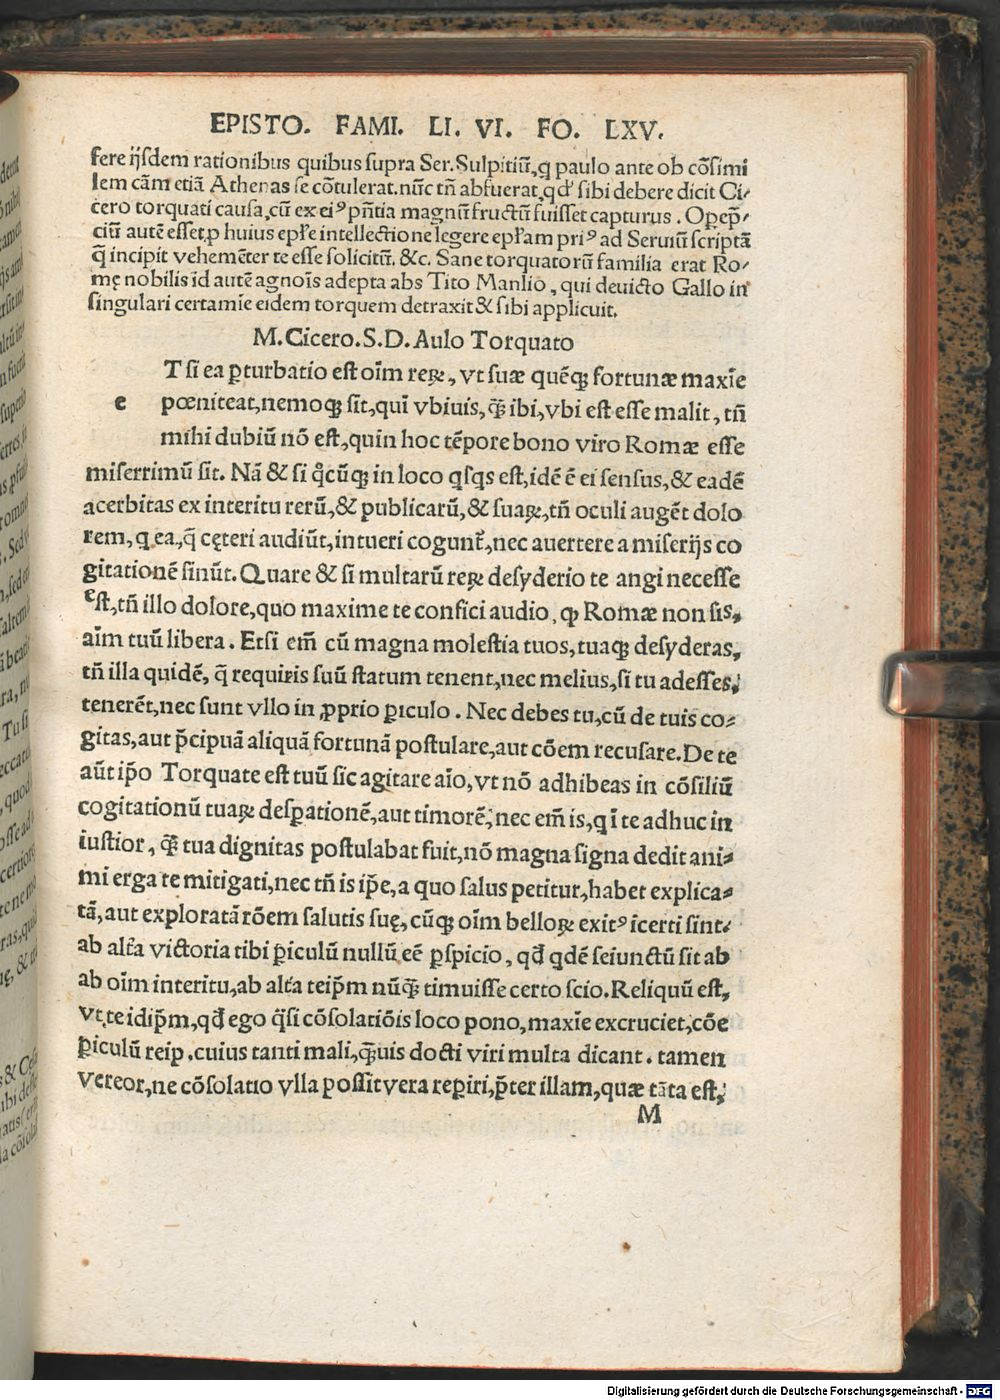 EPISTO. FAMI. LI. VI. FO. LXV.
fere ijſdem rationibus quibus ſupra Ser.Sulpitiũ,q paulo ante ob cõſimi
lem cãm etiã Athenas ſe cõtulerat.nũc tñ abfuerat,qđ ſibi debere dicit Ci⸗
cero torquati cauſa,cũ ex eiꝰ pñtia magnũ fructũ fuiſſet capturus . Opep̃⸗
ciũ autẽ eſſet,p huius epłe intellectione legere epłam priꝰ ad Seruiũ ſcriptã
q̃ incipit vehemẽter te eſſe ſolicitũ. &c. Sane torquatorũ familia erat Ro⸗
mę nobilis id autẽ agnoīs adepta abs Tito Manlio , qui deuicto Gallo in
ſingulari certamīe eidem torquem detraxit & ſibi applicuit.
M.Cicero.S.D.Aulo Torquato
T ſi ea ꝑturbatio eſt oīm reꝝ , vt ſuæ quẽqꝫ fortunæ maxīe
e pœniteat,nemoqꝫ ſit,quī vbiuis,q̃ꝫ ibi,vbi eſt eſſe malit , tñ
mihi dubiũ nõ eſt,quin hoc tẽpore bono viro Romæ eſſe
miſerrimũ ſit. Nã & ſi q̊cũqꝫ in loco qſqs eſt,idẽ ẽ ei ſenſus,& eadẽ
acerbitas ex interitu rerũ,& publicarũ,& ſuaꝝ,tñ oculi augẽt dolo
rem, q ea,q̃ cęteri audiũt,intueri cogunt̃,nec auertere a miſerijs co
gitationẽ ſinũt. Quare & ſi multarũ reꝝ deſyderio te angi neceſſe
eſt,tñ illo dolore,quo maxime te confici audio , ꝙ Romæ non ſis,
aīm tuũ libera . Etſi em̃ cũ magna moleſtia tuos,tuaqꝫ deſyderas,
tñ illa quidẽ, q̃ requiris ſuũ ſtatum tenent,nec melius,ſi tu adeſſes,
tenerẽt,nec ſunt vllo in ꝓprio ꝑiculo . Nec debes tu,cũ de tuis co⸗
gitas,aut p̃cipuã aliquã fortunã poſtulare,aut cõem recuſare.De te
aũt ip̃o Torquate eſt tuũ ſic agitare aīo,vt nõ adhibeas in cõſiliũ
cogitationũ tuaꝝ deſꝑationẽ,aut timorẽ, nec em̃ is,q ī te adhuc in
iuſtior , q̃ꝫ tua dignitas poſtulabat fuit,nõ magna ſigna dedit ani⸗
mi erga te mitigati,nec tñ is ip̃e,a quo ſalus petitur,habet explica⸗
tã,aut exploratã rõem ſalutis ſuę, cũqꝫ oīm belloꝝ exitꝰ ĩcerti ſint,
ab alt̃a victoria tibi ꝑiculũ nullũ eẽ ꝑſpicio , qđ qdẽ ſeiunctũ ſit ab
ab oīm interitu,ab alt̃a teip̃m nũq̃ꝫ timuiſſe certo ſcio. Reliquũ eſt,
vt te idip̃m,qđ ego q̃ſi cõſolatiõis loco pono,maxīe excruciet,cõe
ꝑiculũ reip. cuius tanti mali,q̃ꝫuis docti viri multa dicant . tamen
vereor,ne cõſolatio vlla poſſit vera reꝑiri,p̃ter illam,quæ tãta eſt,
M
Digitalisierung gefördert durch die Deutsche Forschungsgemeinschaft - DFG